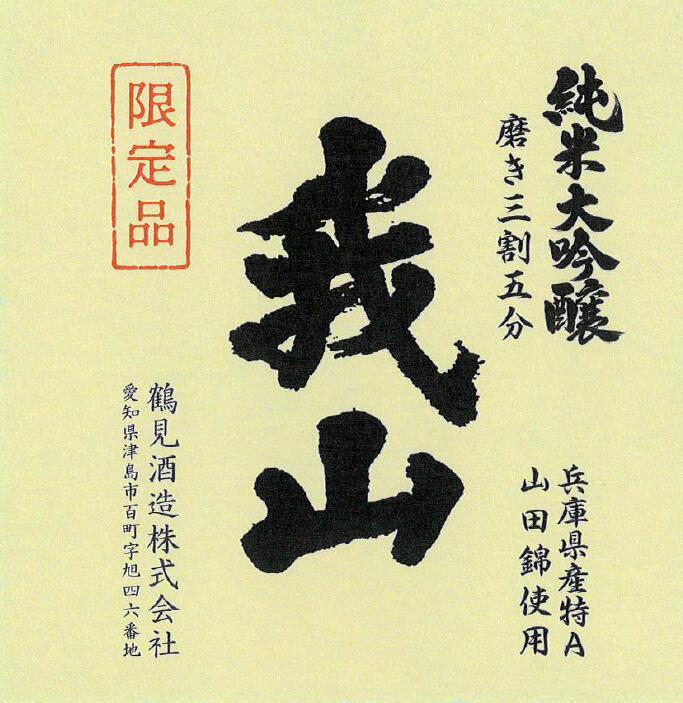 純米大吟醸
磨き三割五分
兵庫県産特A
山田錦使用
我山
限定品
鶴見酒造株式会社
愛知県津島市百町字旭四六番地